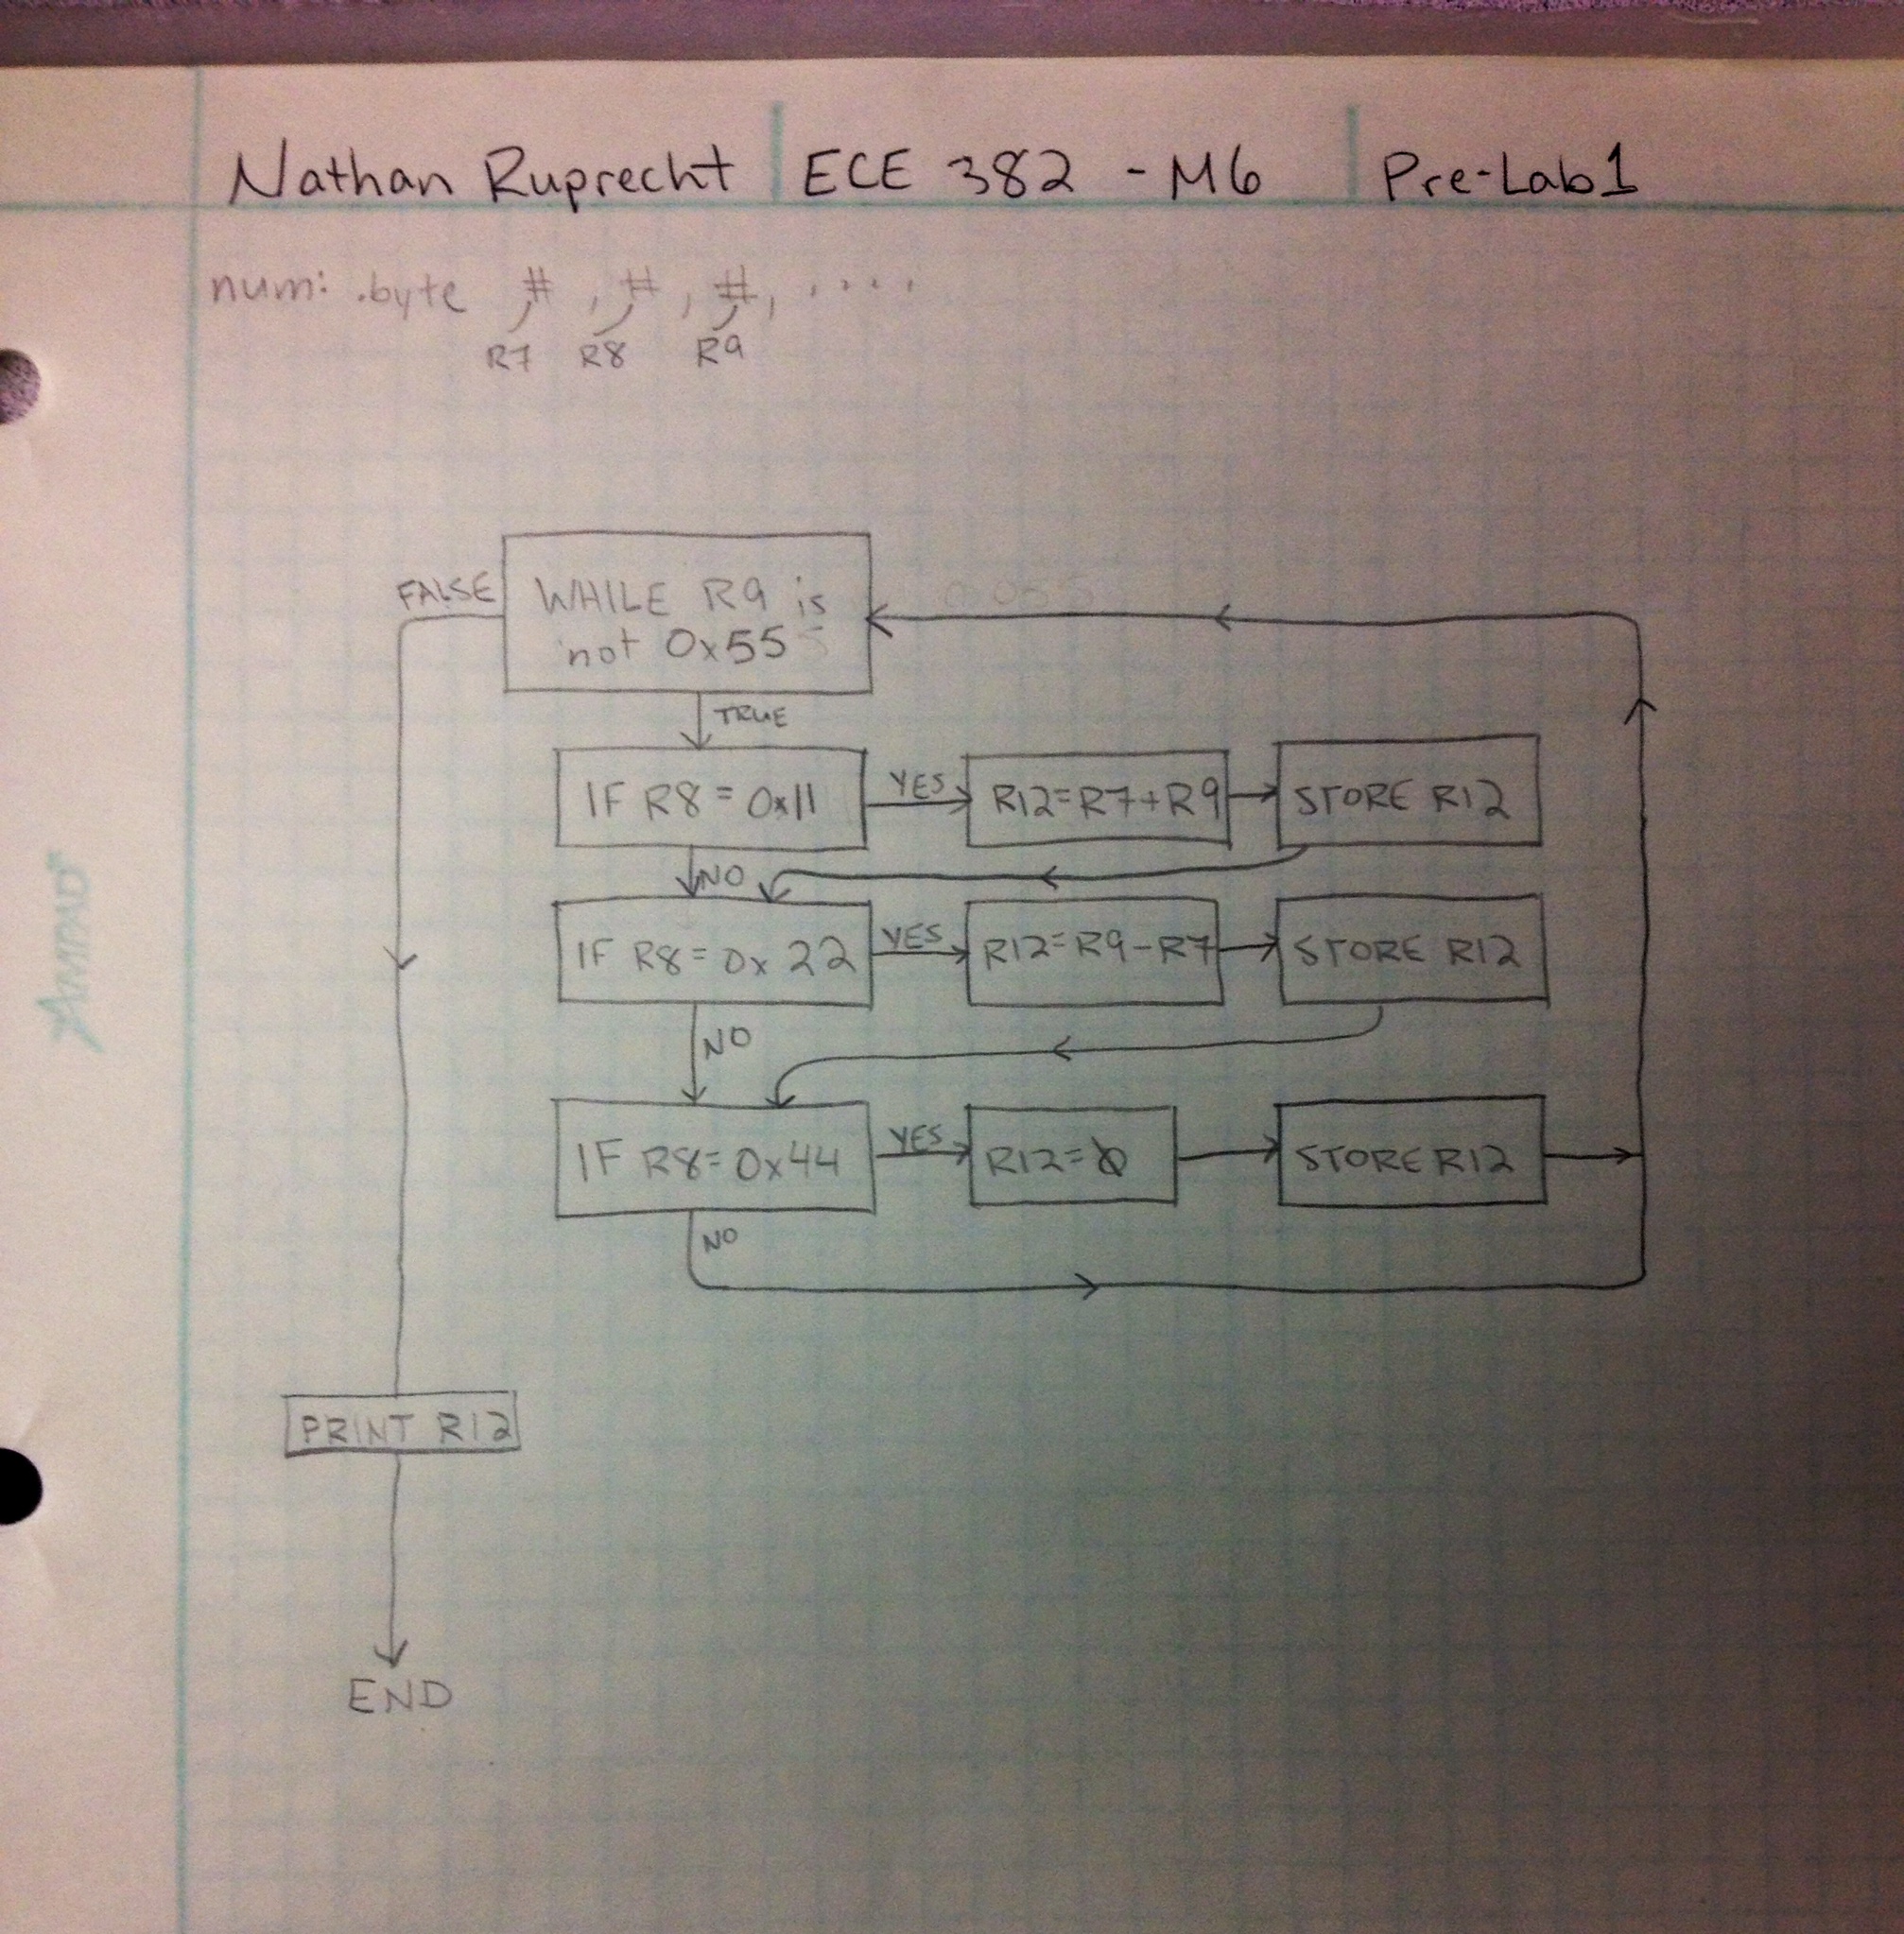 Nathan Ruprecht ECE 382 - M6 Pre-Lab1
num: .byte #, #, #, ....
R7 R8 R9
FALSE
WHILE R9 is
not 0x55
TRUE
IF R8 = 0x11
YES
R12=R7+R9
STORE R12
NO
IF R8=0x22
YES
R12=R9-R7
STORE R12
NO
IF R8=0x44
YES
R12=0
STORE R12
NO
PRINT R12
END
AMPAD